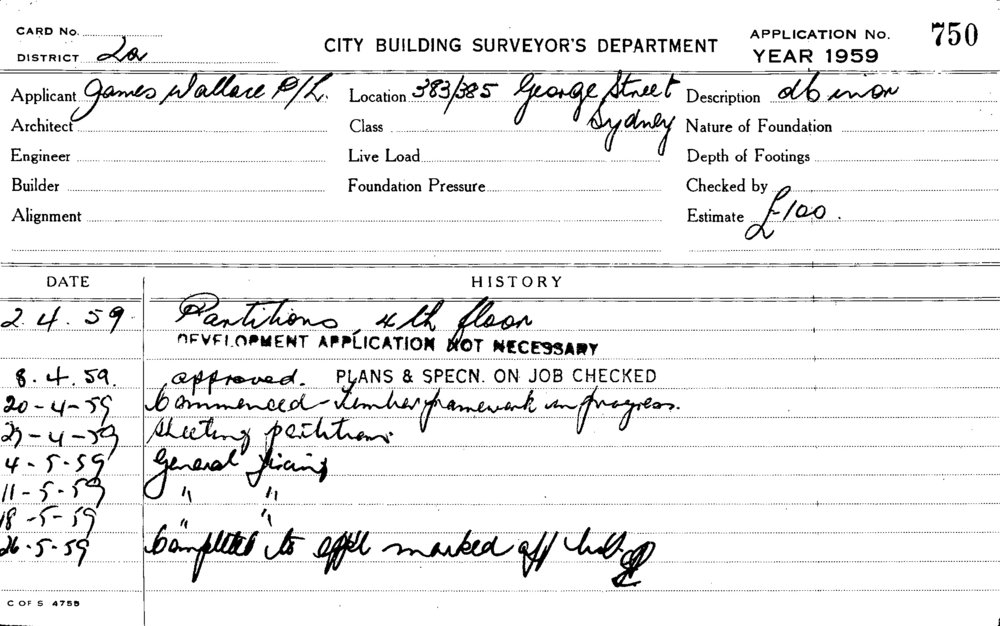 CARD No.
DISTRICT 2a
CITY BUILDING SURVEYOR'S DEPARTMENT
APPLICATION No. 750
YEAR 1959
Applicant James Wallace P/L.
Location 383/385 George Street
Sydney
Description
Architect
Class
Nature of Foundation
Engineer
Live Load
Depth of Footings
Builder
Foundation Pressure
Checked by
Alignment
Estimate £100.
DATE HISTORY
2.4.59 Partitions, 4th floor
DEVELOPMENT APPLICATION NOT NECESSARY
8.4.59. approved. PLANS & SPECN. ON JOB CHECKED
20-4-59 Commenced - timber framework in progress.
27-4-59 Sheeting partitions
4-5-59 General fixing
11-5-59 " "
18-5-59 " "
26-5-59 Completed to marked off
C OF S 4755